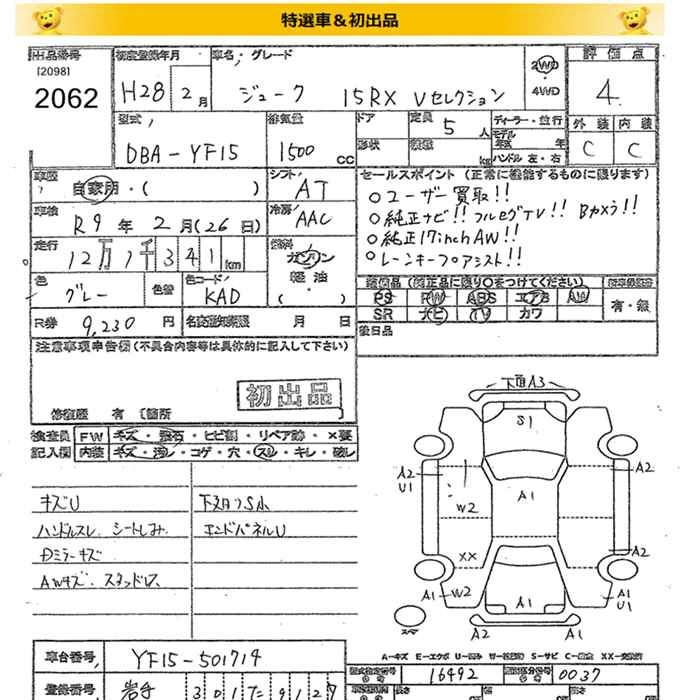 特選車＆初出品
出品番号 初度登録年月 車名・グレード 評価点
[2098]
2062 H28 2月 ジューク 15RX Vセレクション 2WD・4WD 4
型式 排気量 ドア 定員 5人 ディーラー・並行 外装 内装
DBA-YF15 1500cc 形状 kg ハンドル 左・右 C C
車歴 自家用・( ) シフト AT
セールスポイント (正常に機能するものに限ります)
車検 R9年 2月(26日) 冷房 AAC
○ユーザー買取!!
○純正ナビ!! フルセグTV!! Bカメラ!!
○純正17inchAW!!
走行 12万1千341km 燃料 ガソリン・軽油・( )
色 グレー 色替 色コード KAD
装備品 (純正品に限り○をつけてください)
PS PW ABS エアB AW 有・無
SR ナビ TV カワ
R券 9,230円 名変期限 月 日 後日品
注意事項申告欄 (不具合内容等は具体的に記入して下さい)
初出品
修復歴 有 [箇所
検査員 FW キズ・飛石・ヒビ割・リペア跡・×要
記入欄 内装 キズ・汚レ・コゲ・穴・スレ・キレ・破レ
キズU
ハンドルスレ シートしみ
エンドパネルU
ドアミラーキズ
AWキズ スタッドレス
下面A3
S1
A2 U1
A1
A2
W2
XX
A2
A1 W2
A1
A1 U1
スペア
A2 A1
A-キズ E-エクボ U-凹み W-波修跡 S-サビ C-腐食 XX-交換済
車台番号 YF15-501714
型式指定番号 16492 類別区分番号 0037
登録番号 岩手 301 9127